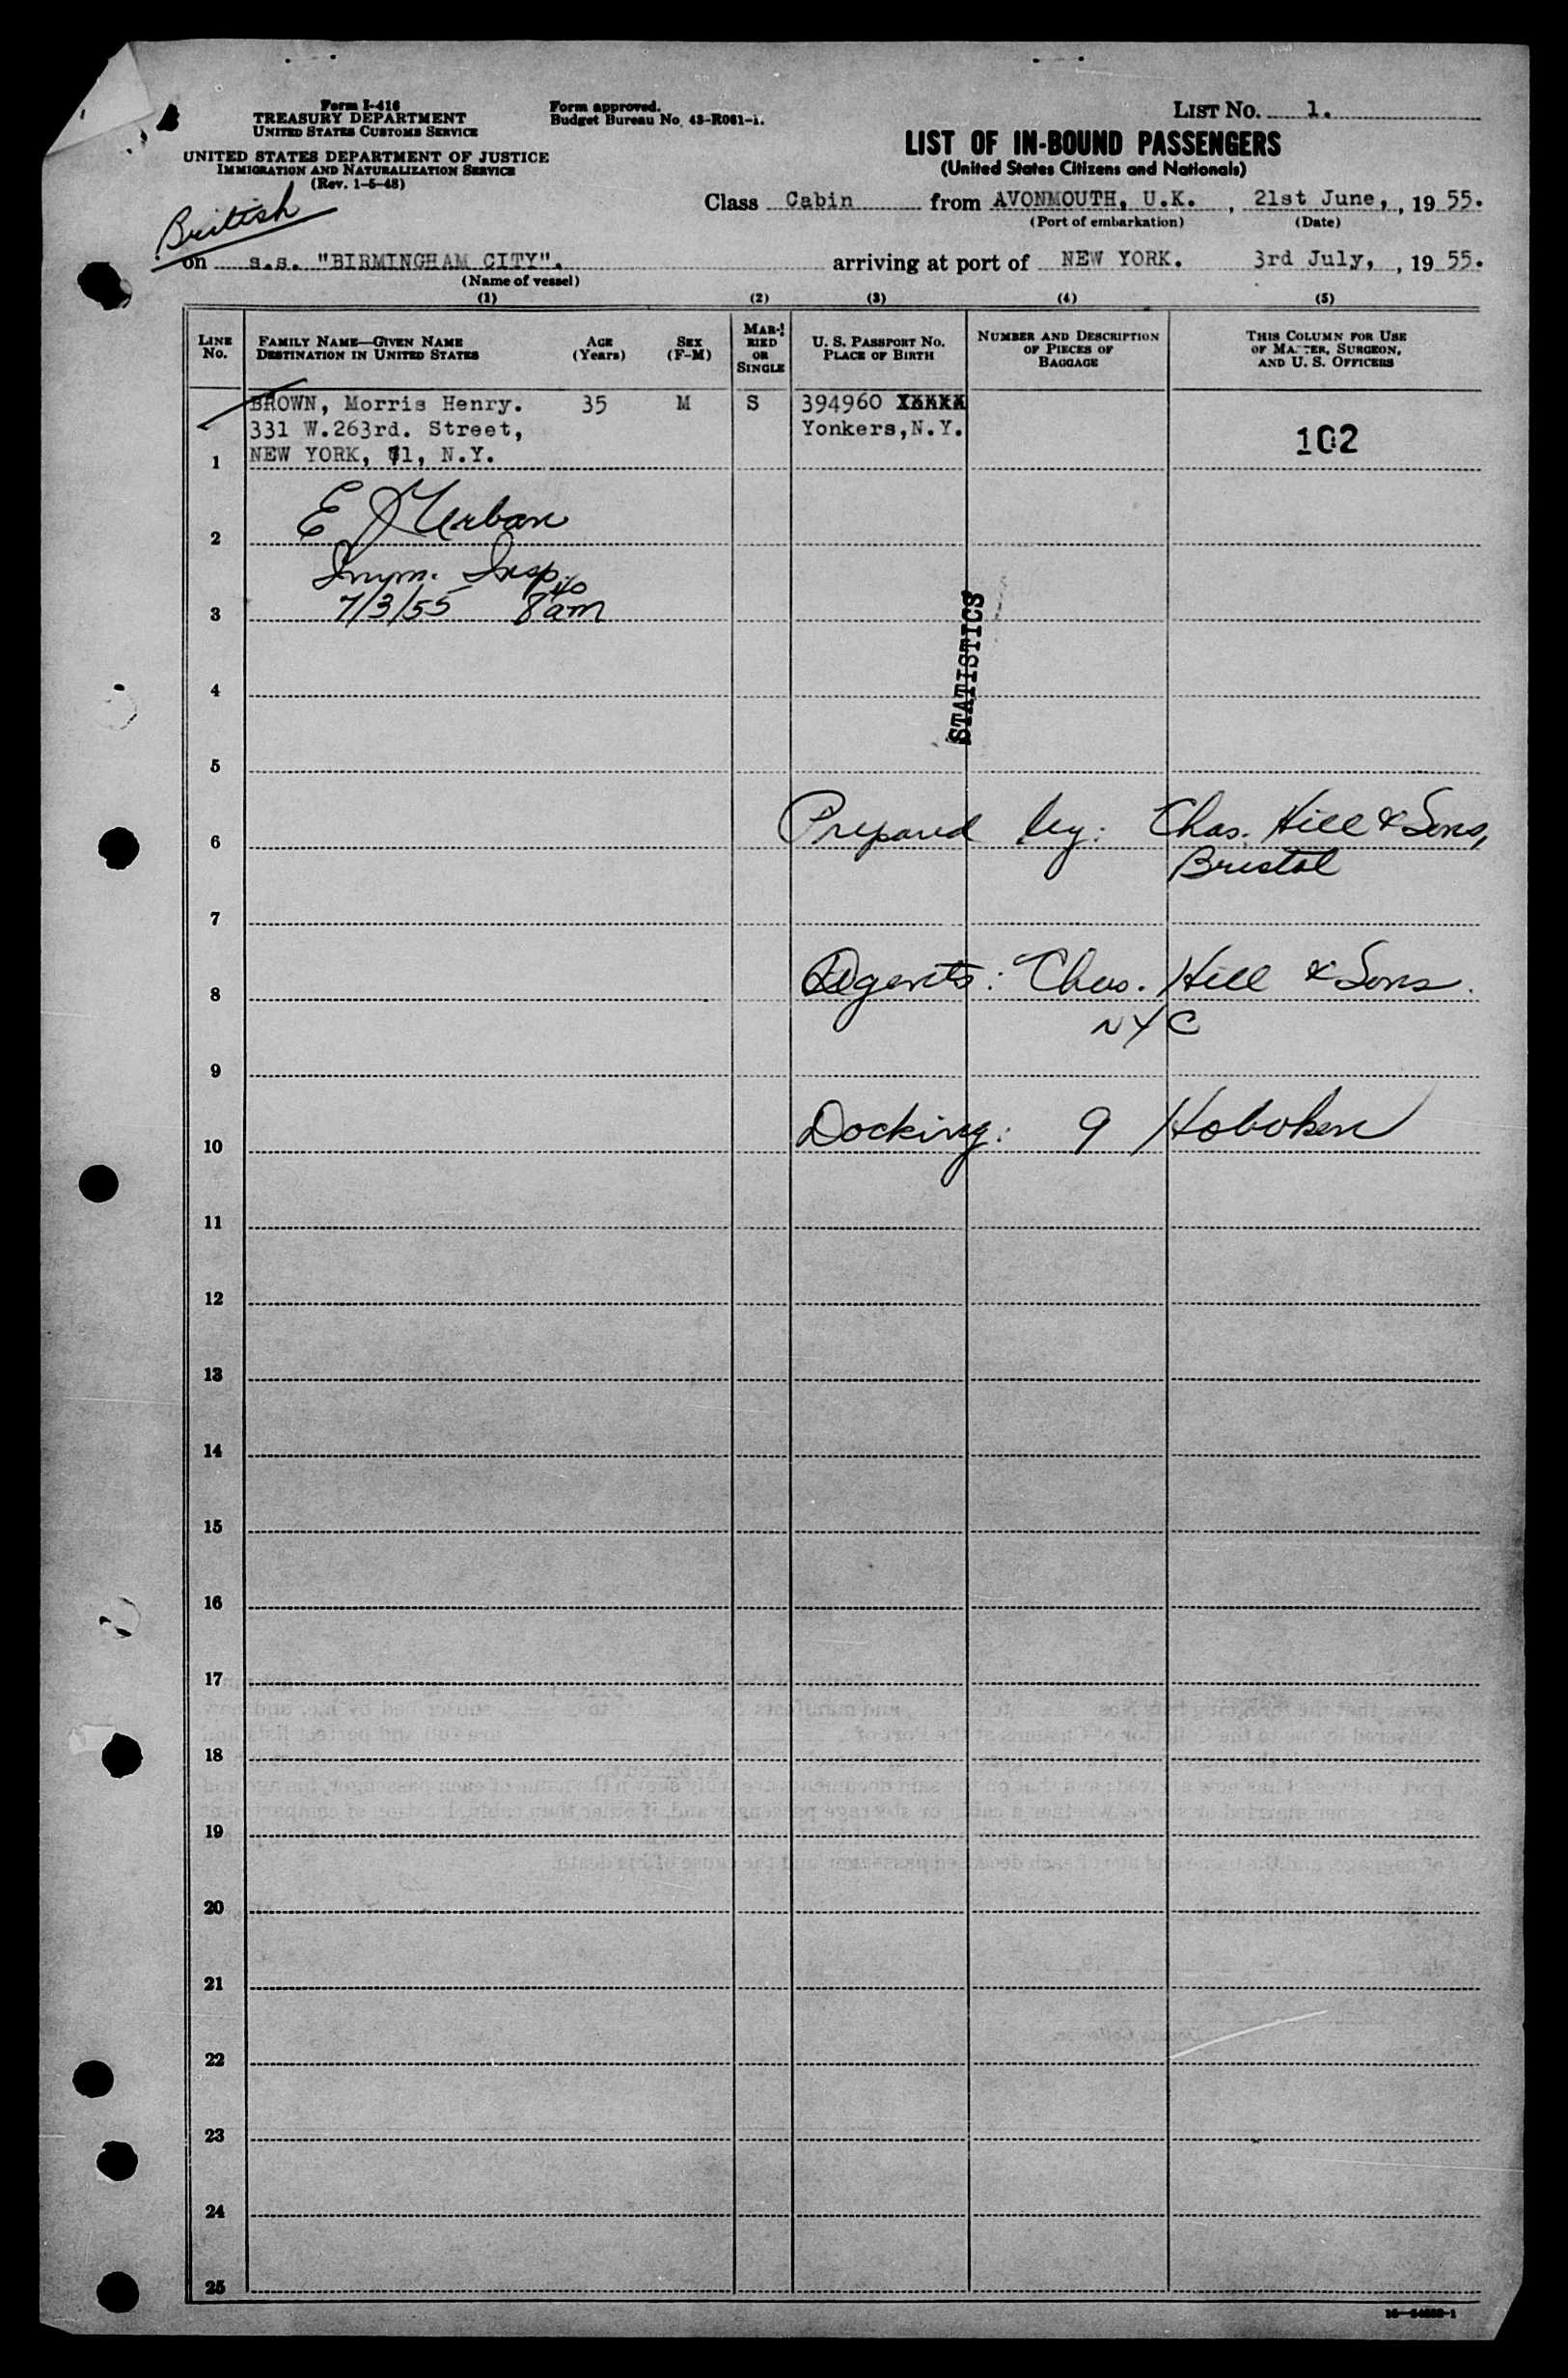 LIST No. 1.
Form I-416
TREASURY DEPARTMENT
UNITED STATES CUSTOMS SERVICE
Form approved.
Budget Bureau No. 43-R081-1.
LIST OF IN-BOUND PASSENGERS
(United States Citizens and Nationals)
UNITED STATES DEPARTMENT OF JUSTICE
IMMIGRATION AND NATURALIZATION SERVICE
(Rev. 1-5-48)
British
Class Cabin from AVONMOUTH, U.K. , 21st June, , 19 55.
(Port of embarkation) (Date)
on s.s. "BIRMINGHAM CITY". arriving at port of NEW YORK. 3rd July, , 19 55.
(Name of vessel)
(1) (2) (3) (4) (5)
LINE No.
FAMILY NAME—GIVEN NAME
DESTINATION IN UNITED STATES
AGE
(Years)
SEX
(F-M)
MAR-
RIED
OR
SINGLE
U. S. PASSPORT No.
PLACE OF BIRTH
NUMBER AND DESCRIPTION
OF PIECES OF
BAGGAGE
THIS COLUMN FOR USE
OF MASTER, SURGEON,
AND U. S. OFFICERS
BROWN, Morris Henry. 35 M S 394960 XXXXX
331 W.263rd. Street, Yonkers,N.Y.
1 NEW YORK, 71, N.Y. 102
2 E J Urban
Imm. Insp
3 7/3/55 8 40 am
STATISTICS
4
5
6 Prepared by: Chas. Hill & Sons,
Bristol
7
8 Agents: Chas. Hill & Sons.
NYC
9
10 Docking: 9 Hoboken
11
12
13
14
15
16
17
18
19
20
21
22
23
24
25